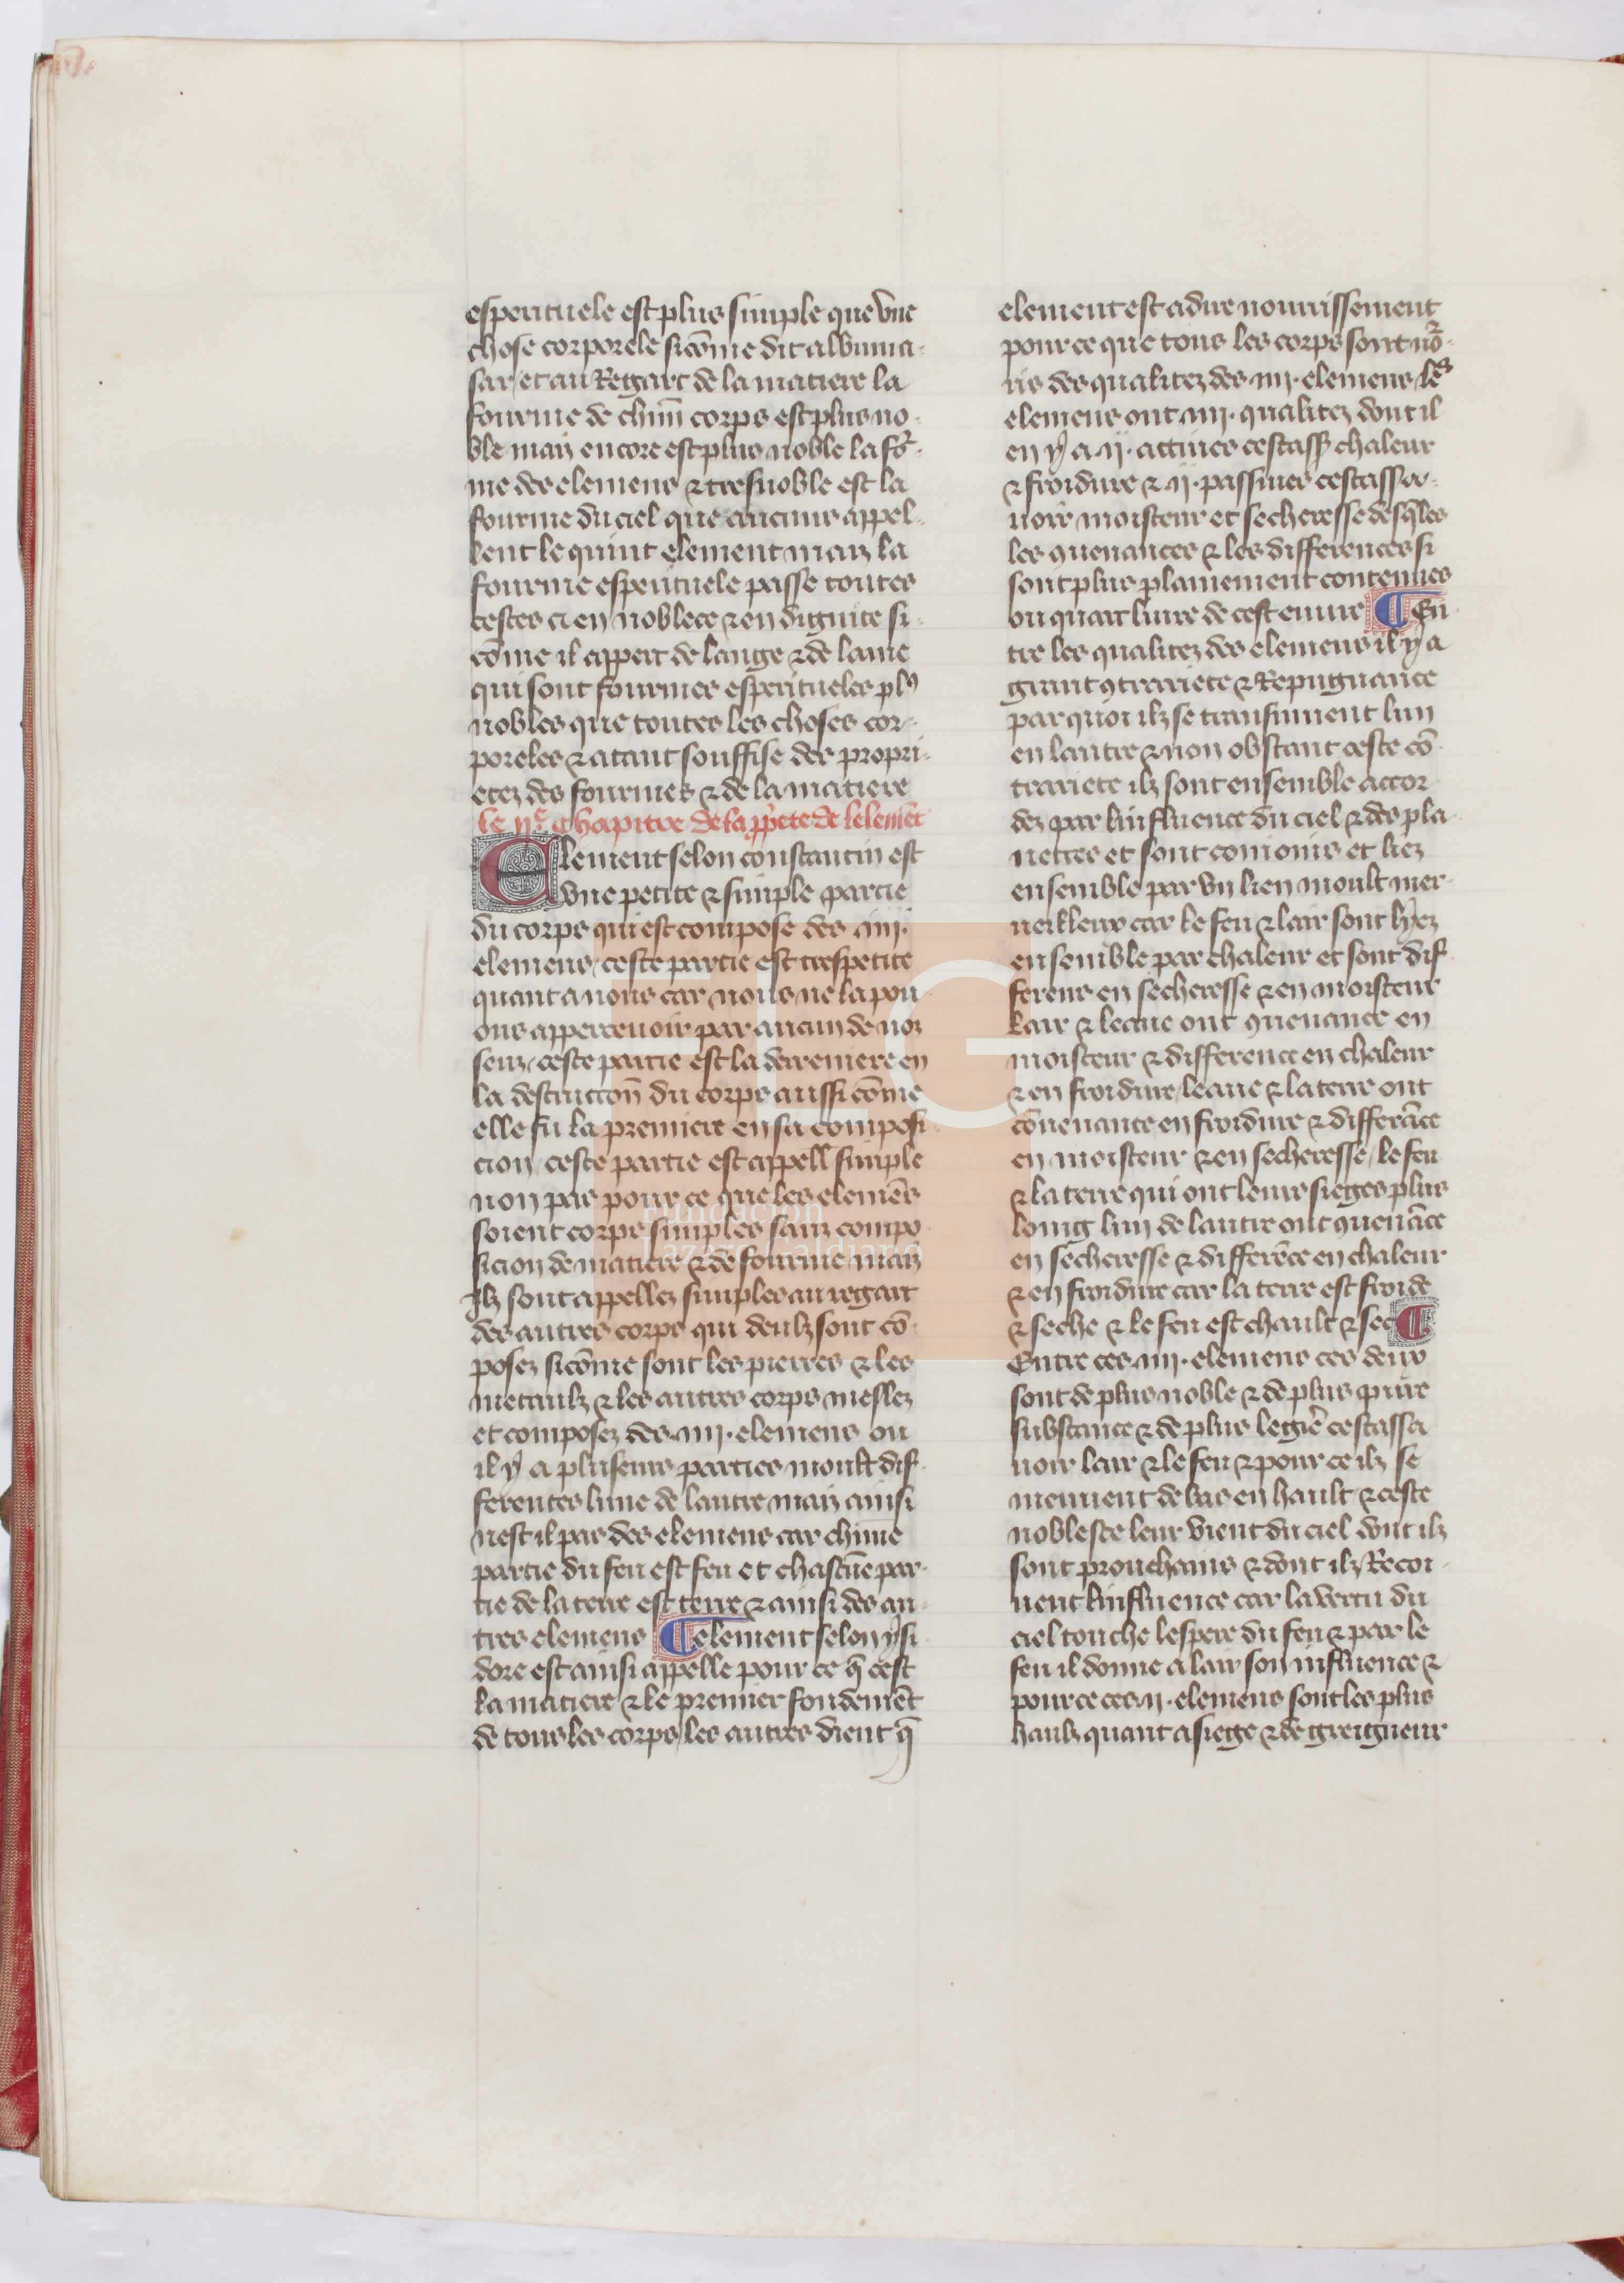 esperituele est plus simple que vne
chose corporele sicõme dit albuma-
sar / et au Regart de la matiere la
fourme de chũn corps est plus no-
ble maiz encore est plus noble la for-
me des elemens ⁊ tresnoble est la
fourme du ciel que aucuns appel-
lent le quint element maiz la
fourme esperituele passe toutes
cestes ci en noblece ⁊ en dignite si
cõme il appert de lange ⁊ de lame
qui sont fourmes esperitueles plꝰ
nobles que toutes les choses cor-
poreles ⁊ atant souffise des propri-
etez des fourmes ⁊ de la matiere
Le ije chapitre de la ꝓpete de lelemẽt
Element selon constantin est
vne petite ⁊ simple partie
du corps qui est compose des iiij.
elemens / ceste partie est trespetite
quant a nous car nous ne la pou
ons apperceuoir par aucun de noz
senz / ceste partie est la derreniere en
la destruccoñ du corps aussi cõme
elle fu la premiere en sa composi
cion / ceste partie est appell simple
non pas pour ce que les elemẽs
soient corps simples sanz compo
sicion de matiere ⁊ de fourme maiz
Ilz sont appellez simples au regart
des autres corps qui deulz sont cõ-
posez sicõme sont les pierres ⁊ les
metaulz ⁊ les autres corps meslez
et composez des .iiij. elemens ou
il ẏ a pluseurs parties moult dif-
ferentes lune de lautre maiz ainsi
nest il pas des elemens car chũne
partie du feu est feu et chascũe par-
tie de la terre est terre ⁊ ainsi des au-
tres elemens ¶ element selon ẏsi
dore est ainsi appelle pour ce q̃ cest
la matiere ⁊ le premier fondemẽt
de tous les corps / les autres dient q̃
element est a dire nourrissement
pour ce que tous les corps sont nor-
ris des qualitez des iiij. elemens / les
elemens ont .iiij. qualitez dont il
en ẏ a .ij. actiues cestass chaleur
⁊ froidure ⁊ .ij. passiues cestassa-
uoir moisteur et secheresse desq̃les
les ꝯuenances ⁊ les differences si
sont plus plainement contenues
ou quart liure de cest euure ¶ En
tre les qualitez des elemens il ẏ a
grant ꝯtrariete ⁊ Repugnance
par quoi ilz se transmuent lun
en lautre ⁊ non obstant ceste cõ-
trariete ilz sont ensemble accor
dez par linfluence du ciel ⁊ des pla-
nettes et sont conioins et liez
ensemble par vn lien moult mer-
ueilleux car le feu ⁊ lair sont lẏez
ensemble par chaleur et sont dif-
ferens en secheresse ⁊ en moisteur
Lair ⁊ leaue ont ꝯuenance en
moisteur ⁊ difference en chaleur
⁊ en froidure / leaue ⁊ la terre ont
cõuenance en froidure ⁊ differãce
en moisteur ⁊ en secheresse / le feu
⁊ la terre qui ont leurs sieges plus
loing lun de lautre ont ꝯuenãce
en secheresse ⁊ differẽce en chaleur
⁊ en froidure car la terre est froide
⁊ seche ⁊ le feu est chault ⁊ sec ¶
Entre ces .iiij. elemens ces deux
sont de plus noble ⁊ de plus pure
substance ⁊ de plus legiere cestassa
uoir lair ⁊ le feu ⁊ pour ce ilz se
meuuent de bas en hault / ⁊ ceste
noblesce leur vient du ciel dont ilz
sont prouchains ⁊ dont ilz Recoi-
uent linfluence car la vertu du
ciel touche lespere du feu ⁊ par le
feu il donne a lair son influence ⁊
pour ce ces .ij. elemens sont les plus
haulz quant a siege ⁊ de greigneur